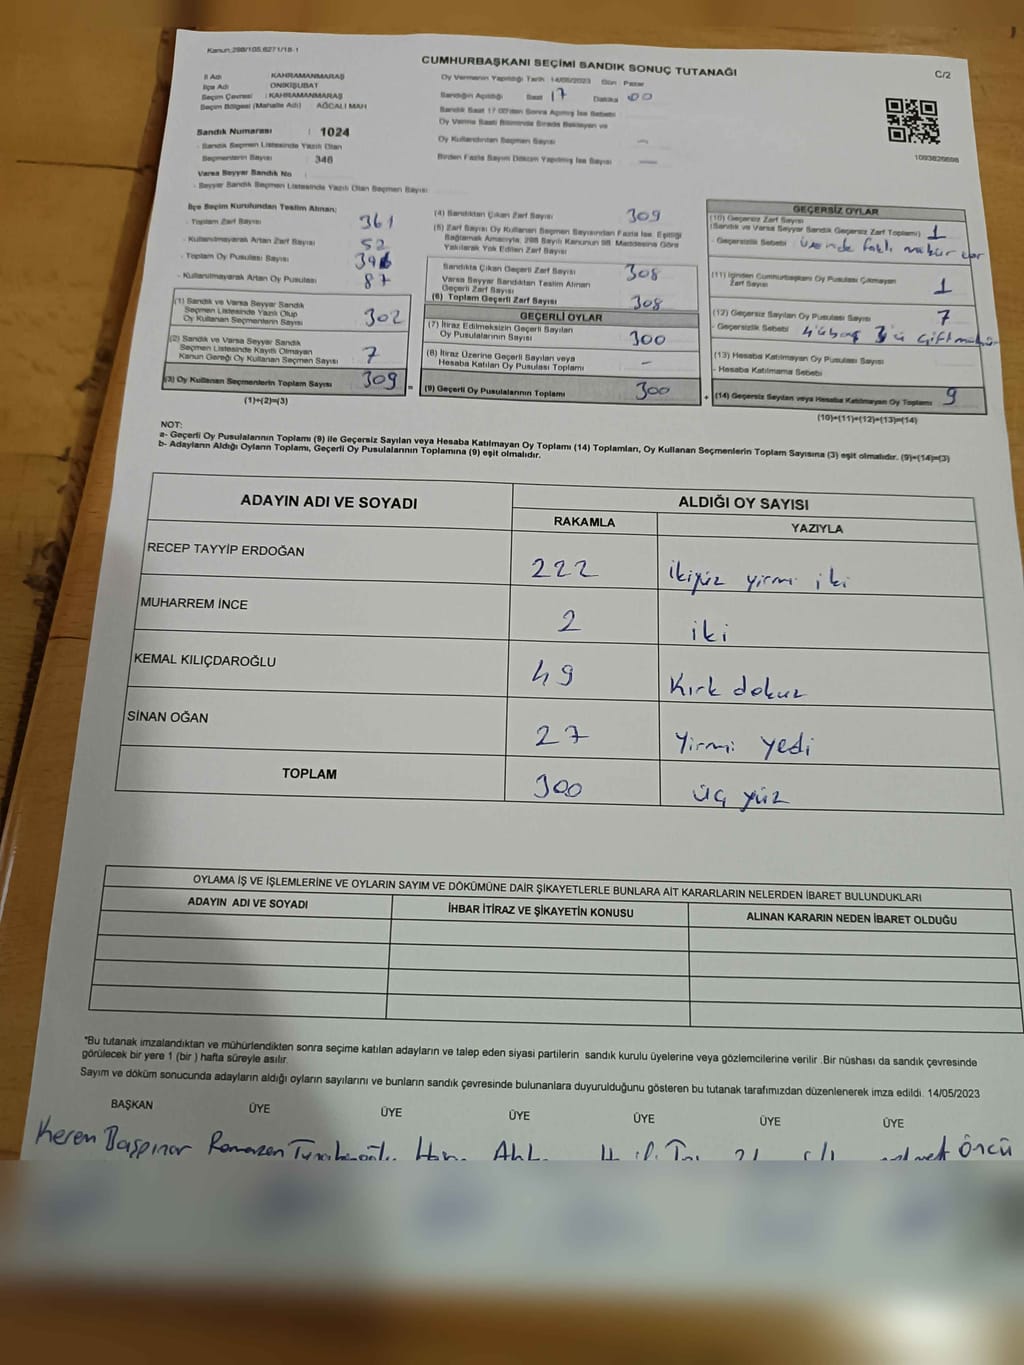 Kanun:298/105,6271/18-1
CUMHURBAŞKANI SEÇİMİ SANDIK SONUÇ TUTANAĞI
C/2
İl Adı KAHRAMANMARAŞ
İlçe Adı ONİKİŞUBAT
Seçim Çevresi : KAHRAMANMARAŞ
Seçim Bölgesi (Mahalle Adı) AĞCALI MAH
Sandık Numarası : 1024
Sandık Seçmen Listesinde Yazılı Olan
Seçmenlerin Sayısı 346
Varsa Seyyar Sandık No
- Seyyar Sandık Seçmen Listesinde Yazılı Olan Seçmen Sayısı
Oy Vermenin Yapıldığı Tarih 14/05/2023 Gün Pazar
Sandığın Açıldığı Saat 17 Dakika 00
Sandık Saat 17:00'den Sonra Açılmış İse Sebebi
Oy Verme Saati Bitiminde Sırada Bekleyen ve
Oy Kullandırılan Seçmen Sayısı —
Birden Fazla Sayım Döküm Yapılmış İse Sayısı —
1093826698
İlçe Seçim Kurulundan Teslim Alınan;
- Toplam Zarf Sayısı 361
- Kullanılmayarak Artan Zarf Sayısı 52
- Toplam Oy Pusulası Sayısı
- Kullanılmayarak Artan Oy Pusulası 87
(1) Sandık ve Varsa Seyyar Sandık
Seçmen Listesinde Yazılı Olup
Oy Kullanan Seçmenlerin Sayısı 302
(2) Sandık ve Varsa Seyyar Sandık
Seçmen Listesinde Kayıtlı Olmayan
Kanun Gereği Oy Kullanan Seçmen Sayısı 7
(3) Oy Kullanan Seçmenlerin Toplam Sayısı 309 =
(1)+(2)=(3)
(4) Sandıktan Çıkan Zarf Sayısı 309
(5) Zarf Sayısı Oy Kullanan Seçmen Sayısından Fazla İse, Eşitliği
Sağlamak Amacıyla, 298 Sayılı Kanunun 98. Maddesine Göre
Yakılarak Yok Edilen Zarf Sayısı
Sandıkta Çıkan Geçerli Zarf Sayısı 308
Varsa Seyyar Sandıktan Teslim Alınan
Geçerli Zarf Sayısı
(6) Toplam Geçerli Zarf Sayısı 308
GEÇERLİ OYLAR
(7) İtiraz Edilmeksizin Geçerli Sayılan
Oy Pusulalarının Sayısı 300
(8) İtiraz Üzerine Geçerli Sayılan veya
Hesaba Katılan Oy Pusulası Toplamı -
(9) Geçerli Oy Pusulalarının Toplamı 300 +
GEÇERSİZ OYLAR
(10) Geçersiz Zarf Sayısı
(Sandık ve Varsa Seyyar Sandık Geçersiz Zarf Toplamı) 1
- Geçersizlik Sebebi
(11) İçinden Cumhurbaşkanı Oy Pusulası Çıkmayan
Zarf Sayısı 1
(12) Geçersiz Sayılan Oy Pusulası Sayısı 7
- Geçersizlik Sebebi 4'ü boş 3'ü çift mühür
(13) Hesaba Katılmayan Oy Pusulası Sayısı
- Hesaba Katılmama Sebebi
(14) Geçersiz Sayılan veya Hesaba Katılmayan Oy Toplamı 9
(10)+(11)+(12)+(13)=(14)
NOT:
a- Geçerli Oy Pusulalarının Toplamı (9) ile Geçersiz Sayılan veya Hesaba Katılmayan Oy Toplamı (14) Toplamları, Oy Kullanan Seçmenlerin Toplam Sayısına (3) eşit olmalıdır. (9)+(14)=(3)
b- Adayların Aldığı Oyların Toplamı, Geçerli Oy Pusulalarının Toplamına (9) eşit olmalıdır.
ADAYIN ADI VE SOYADI
ALDIĞI OY SAYISI
RAKAMLA YAZIYLA
RECEP TAYYİP ERDOĞAN 222 ikiyüz yirmi iki
MUHARREM İNCE 2 iki
KEMAL KILIÇDAROĞLU 49 Kırk dokuz
SİNAN OĞAN 27 Yirmi yedi
TOPLAM 300 üç yüz
OYLAMA İŞ VE İŞLEMLERİNE VE OYLARIN SAYIM VE DÖKÜMÜNE DAİR ŞİKAYETLERLE BUNLARA AİT KARARLARIN NELERDEN İBARET BULUNDUKLARI
ADAYIN ADI VE SOYADI İHBAR İTİRAZ VE ŞİKAYETİN KONUSU ALINAN KARARIN NEDEN İBARET OLDUĞU
*Bu tutanak imzalandıktan ve mühürlendikten sonra seçime katılan adayların ve talep eden siyasi partilerin sandık kurulu üyelerine veya gözlemcilerine verilir .Bir nüshası da sandık çevresinde
görülecek bir yere 1 (bir ) hafta süreyle asılır.
Sayım ve döküm sonucunda adayların aldığı oyların sayılarını ve bunların sandık çevresinde bulunanlara duyurulduğunu gösteren bu tutanak tarafımızdan düzenlenerek imza edildi. 14/05/2023
BAŞKAN ÜYE ÜYE ÜYE ÜYE ÜYE ÜYE
Kerem Başpınar Ramazan Öncü